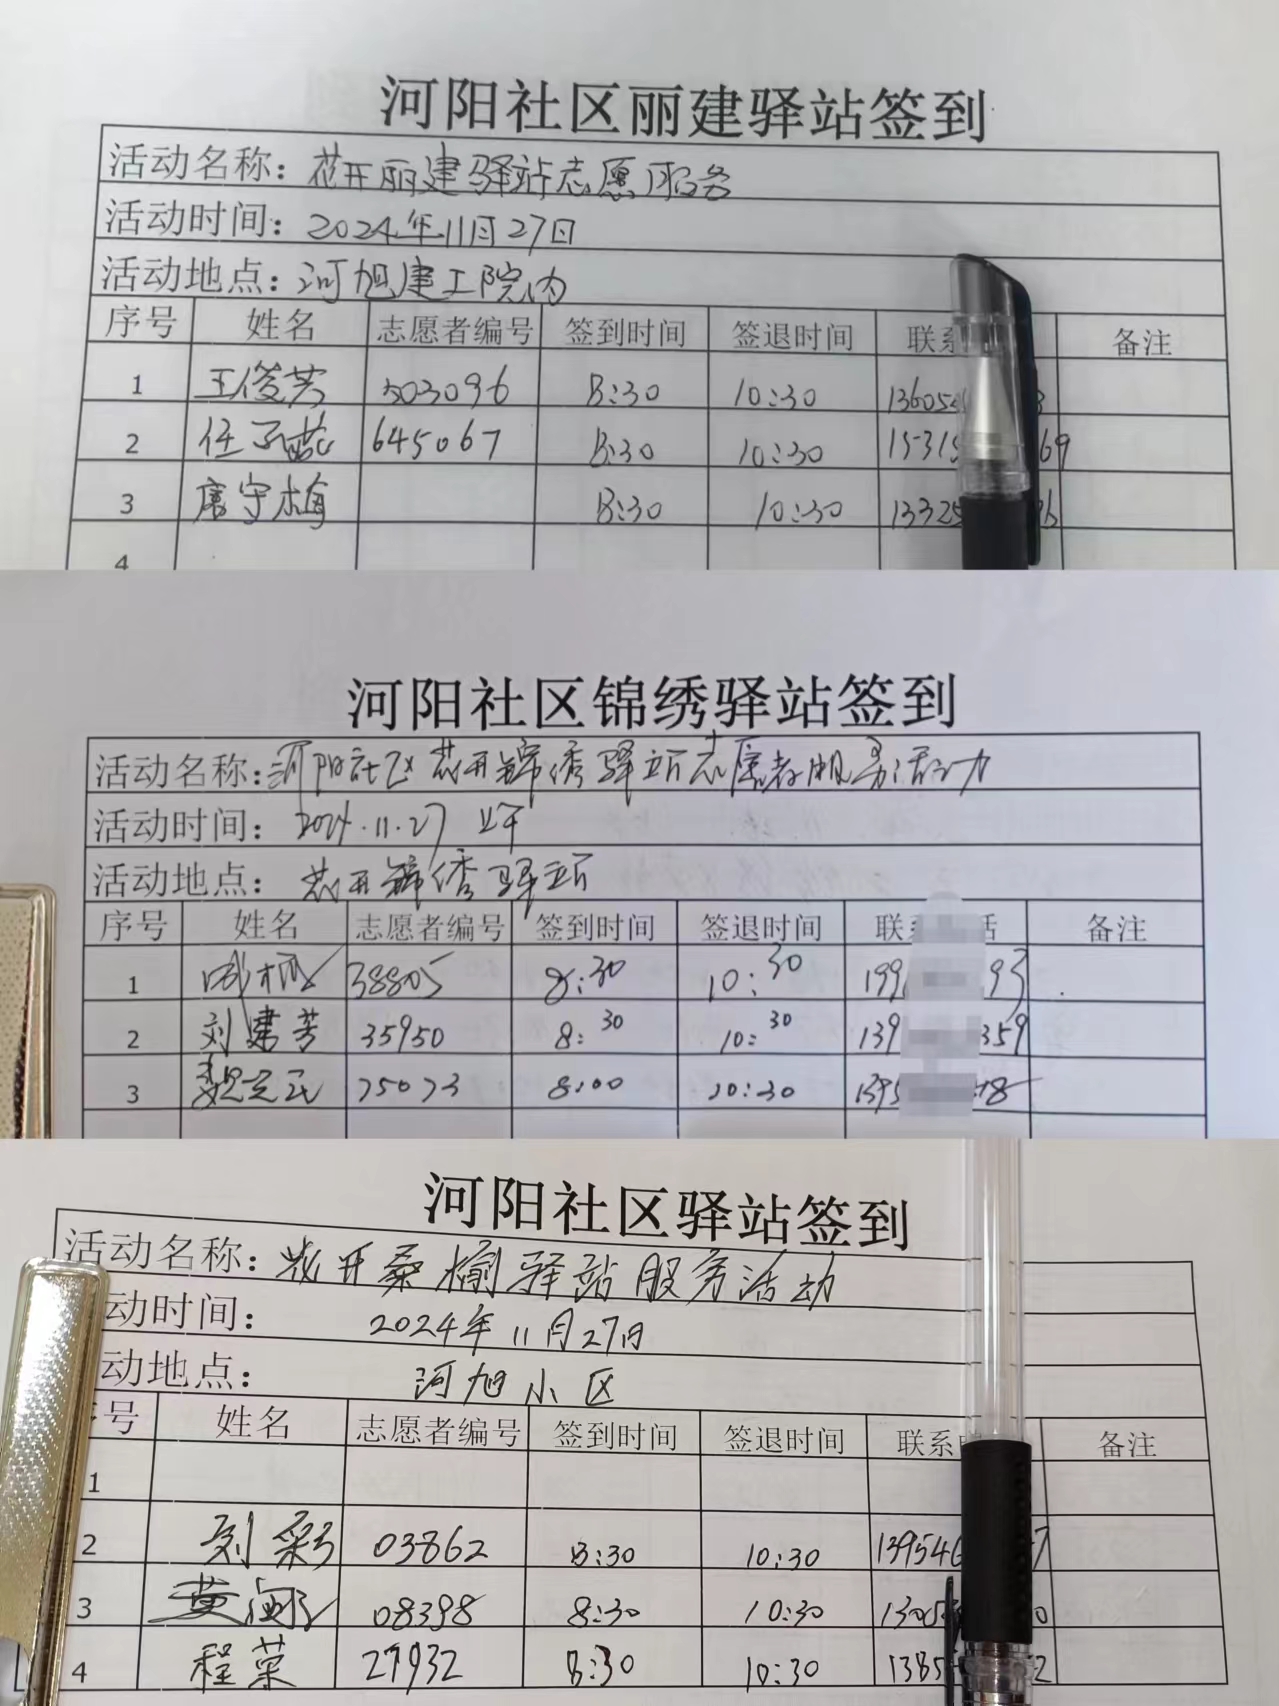 河阳社区丽建驿站签到
活动名称：花开丽建驿站志愿服务
活动时间：2024年11月27日
活动地点：河旭建工院内
序号 姓名 志愿者编号 签到时间 签退时间 联系 备注
1 王俊芳 503096 8:30 10:30 13605
2 任 645067 8:30 10:30 15315 69
3 唐守梅 8:30 10:30 13325
4
河阳社区锦绣驿站签到
活动名称：河阳社区花开锦绣驿站志愿者服务活动
活动时间：2024.11.27 上午
活动地点：花开锦绣驿站
序号 姓名 志愿者编号 签到时间 签退时间 联 话 备注
1 38805 8:30 10:30 199 93
2 刘建芳 35950 8:30 10:30 139 359
3 75073 8:00 10:30 1395 8
河阳社区驿站签到
活动名称：花开桑榆驿站服务活动
动时间：2024年11月27日
动地点：河旭小区
号 姓名 志愿者编号 签到时间 签退时间 联系 备注
1
2 刘彩 03862 8:30 10:30 139546 7
3 黄 08398 8:30 10:30 1305 0
4 程菜 27932 8:30 10:30 1385 2